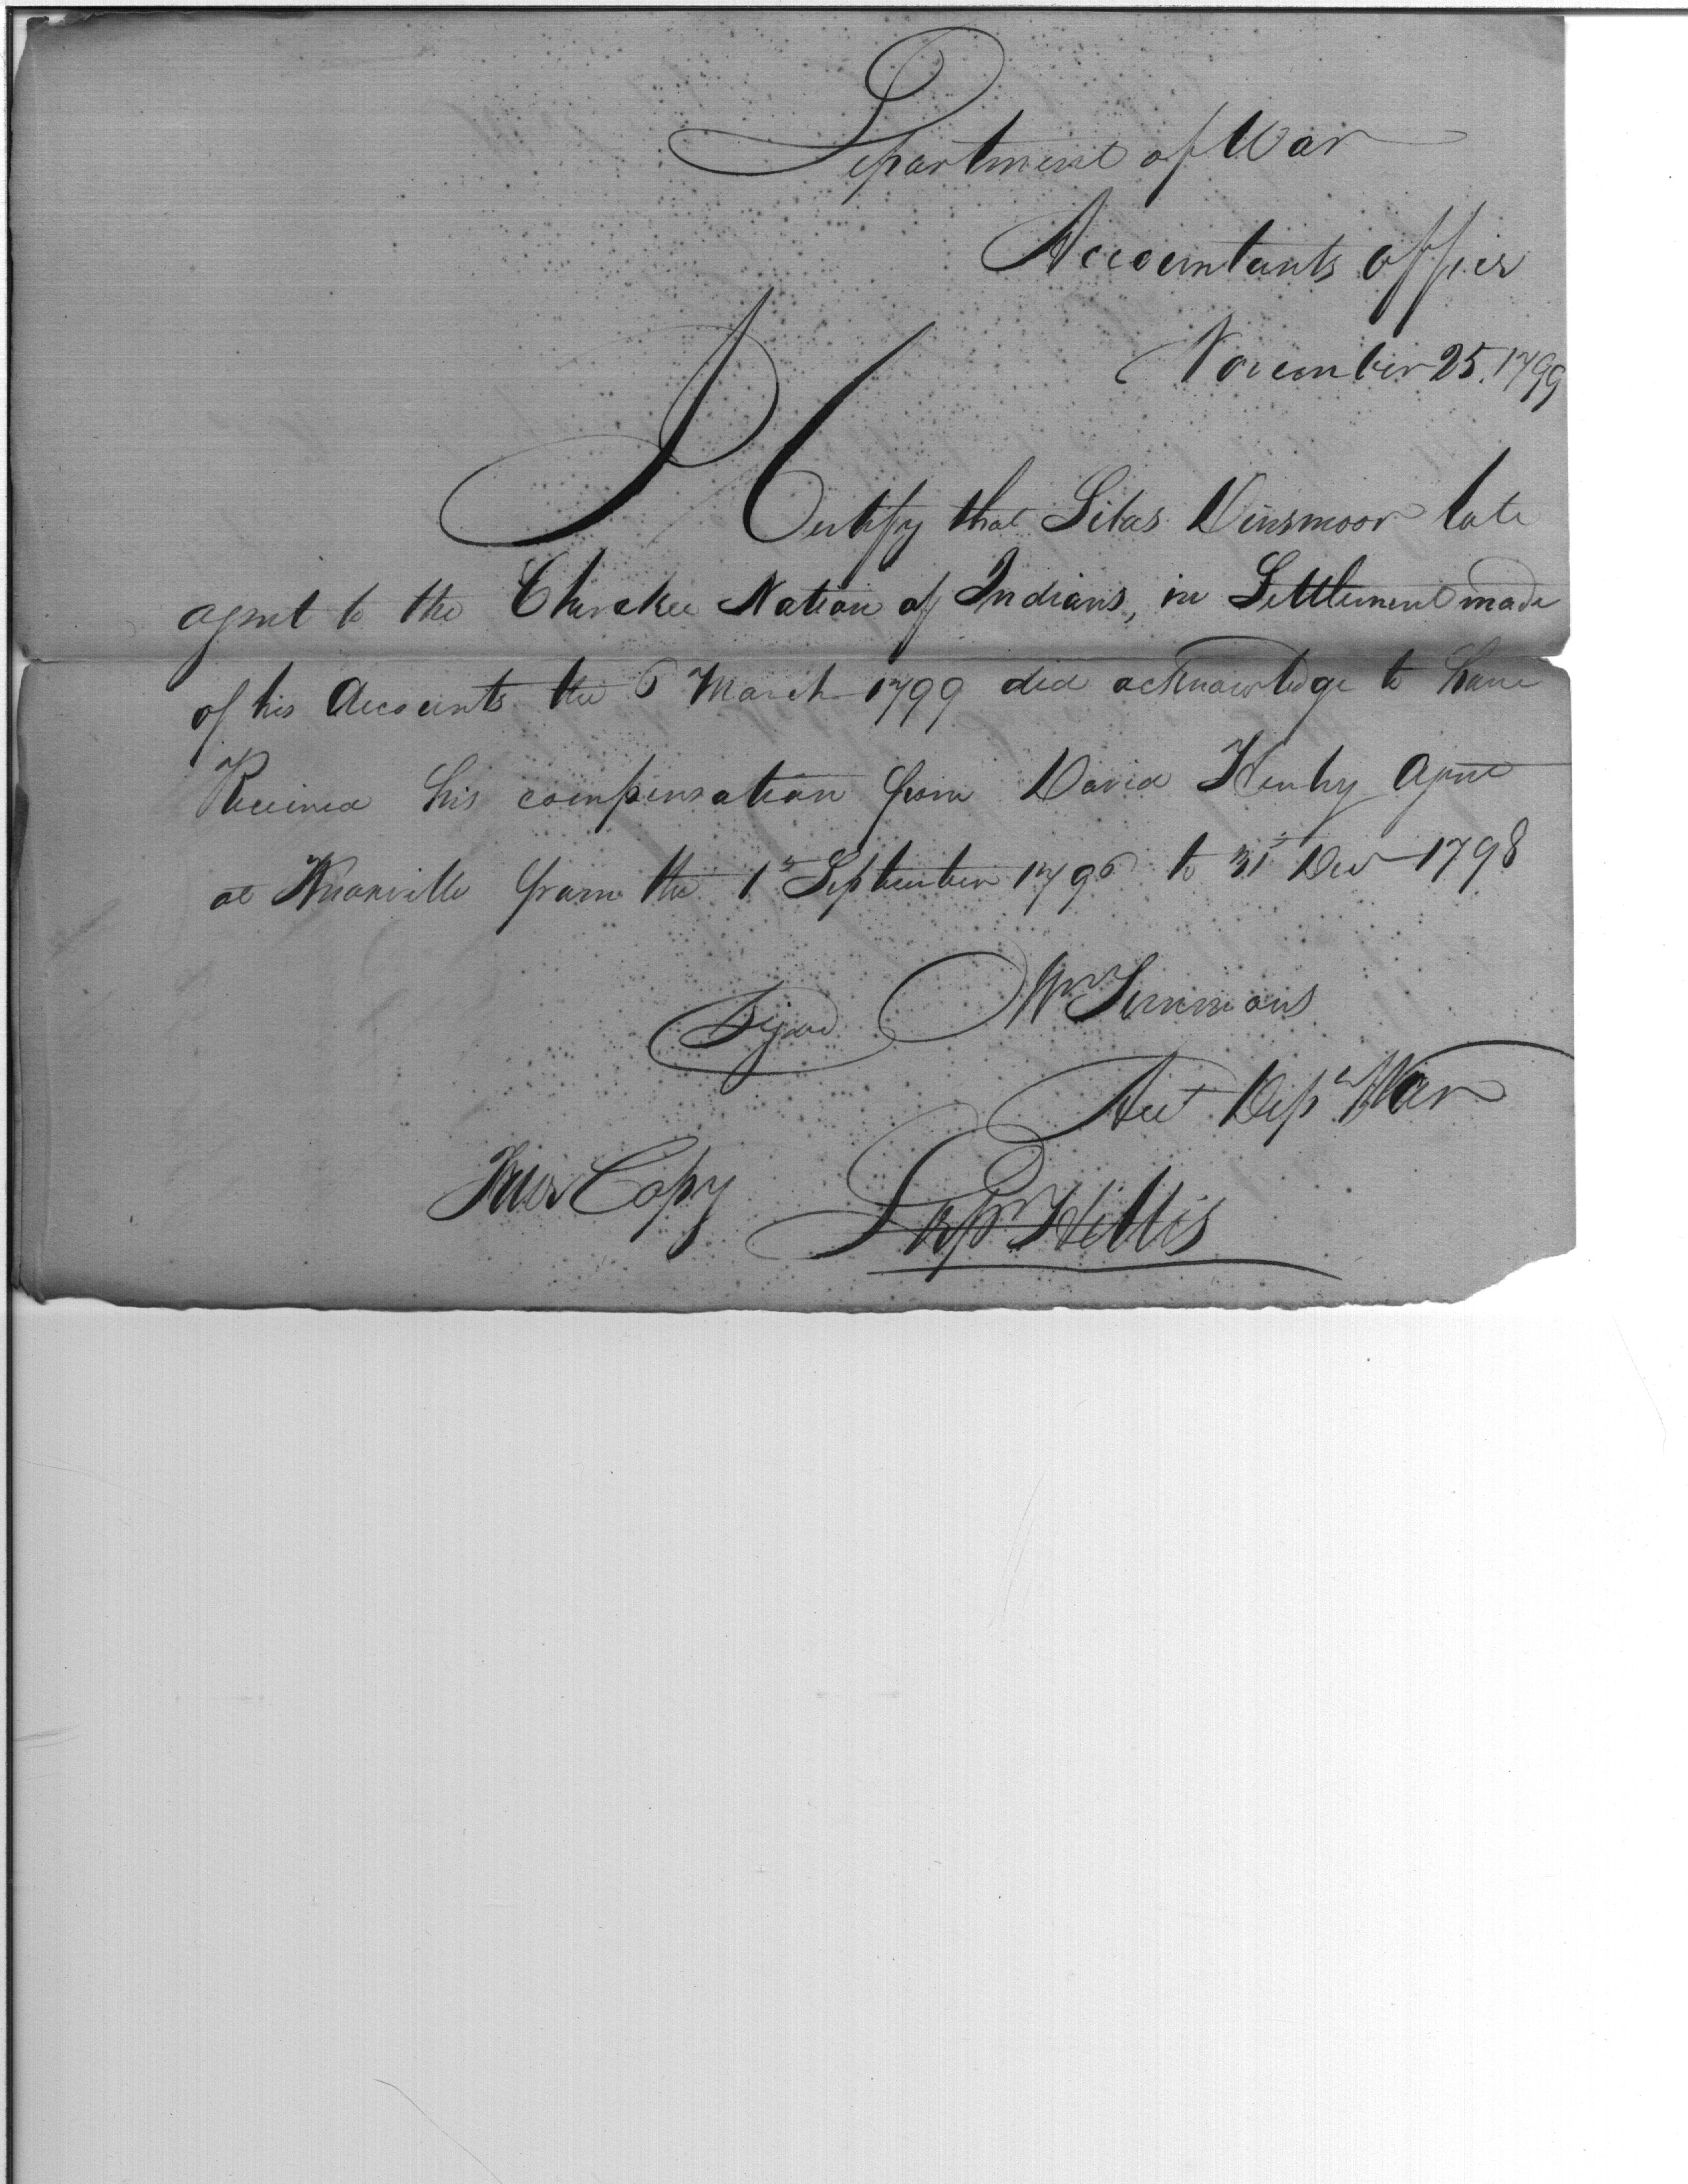 Department of War
Accountants office
November 25. 1799
I Certify that Silas Dinsmoor late
agent to the Cherokee Nation of Indians, in Settlement made
of his Accounts the 6 March 1799 did acknowledge to have
Received his compensation from David Henley Agent
at Knoxville from the 1st September 1796 to 31st Decr 1798
Signed Wm Simmons
Acct Dept War
True Copy